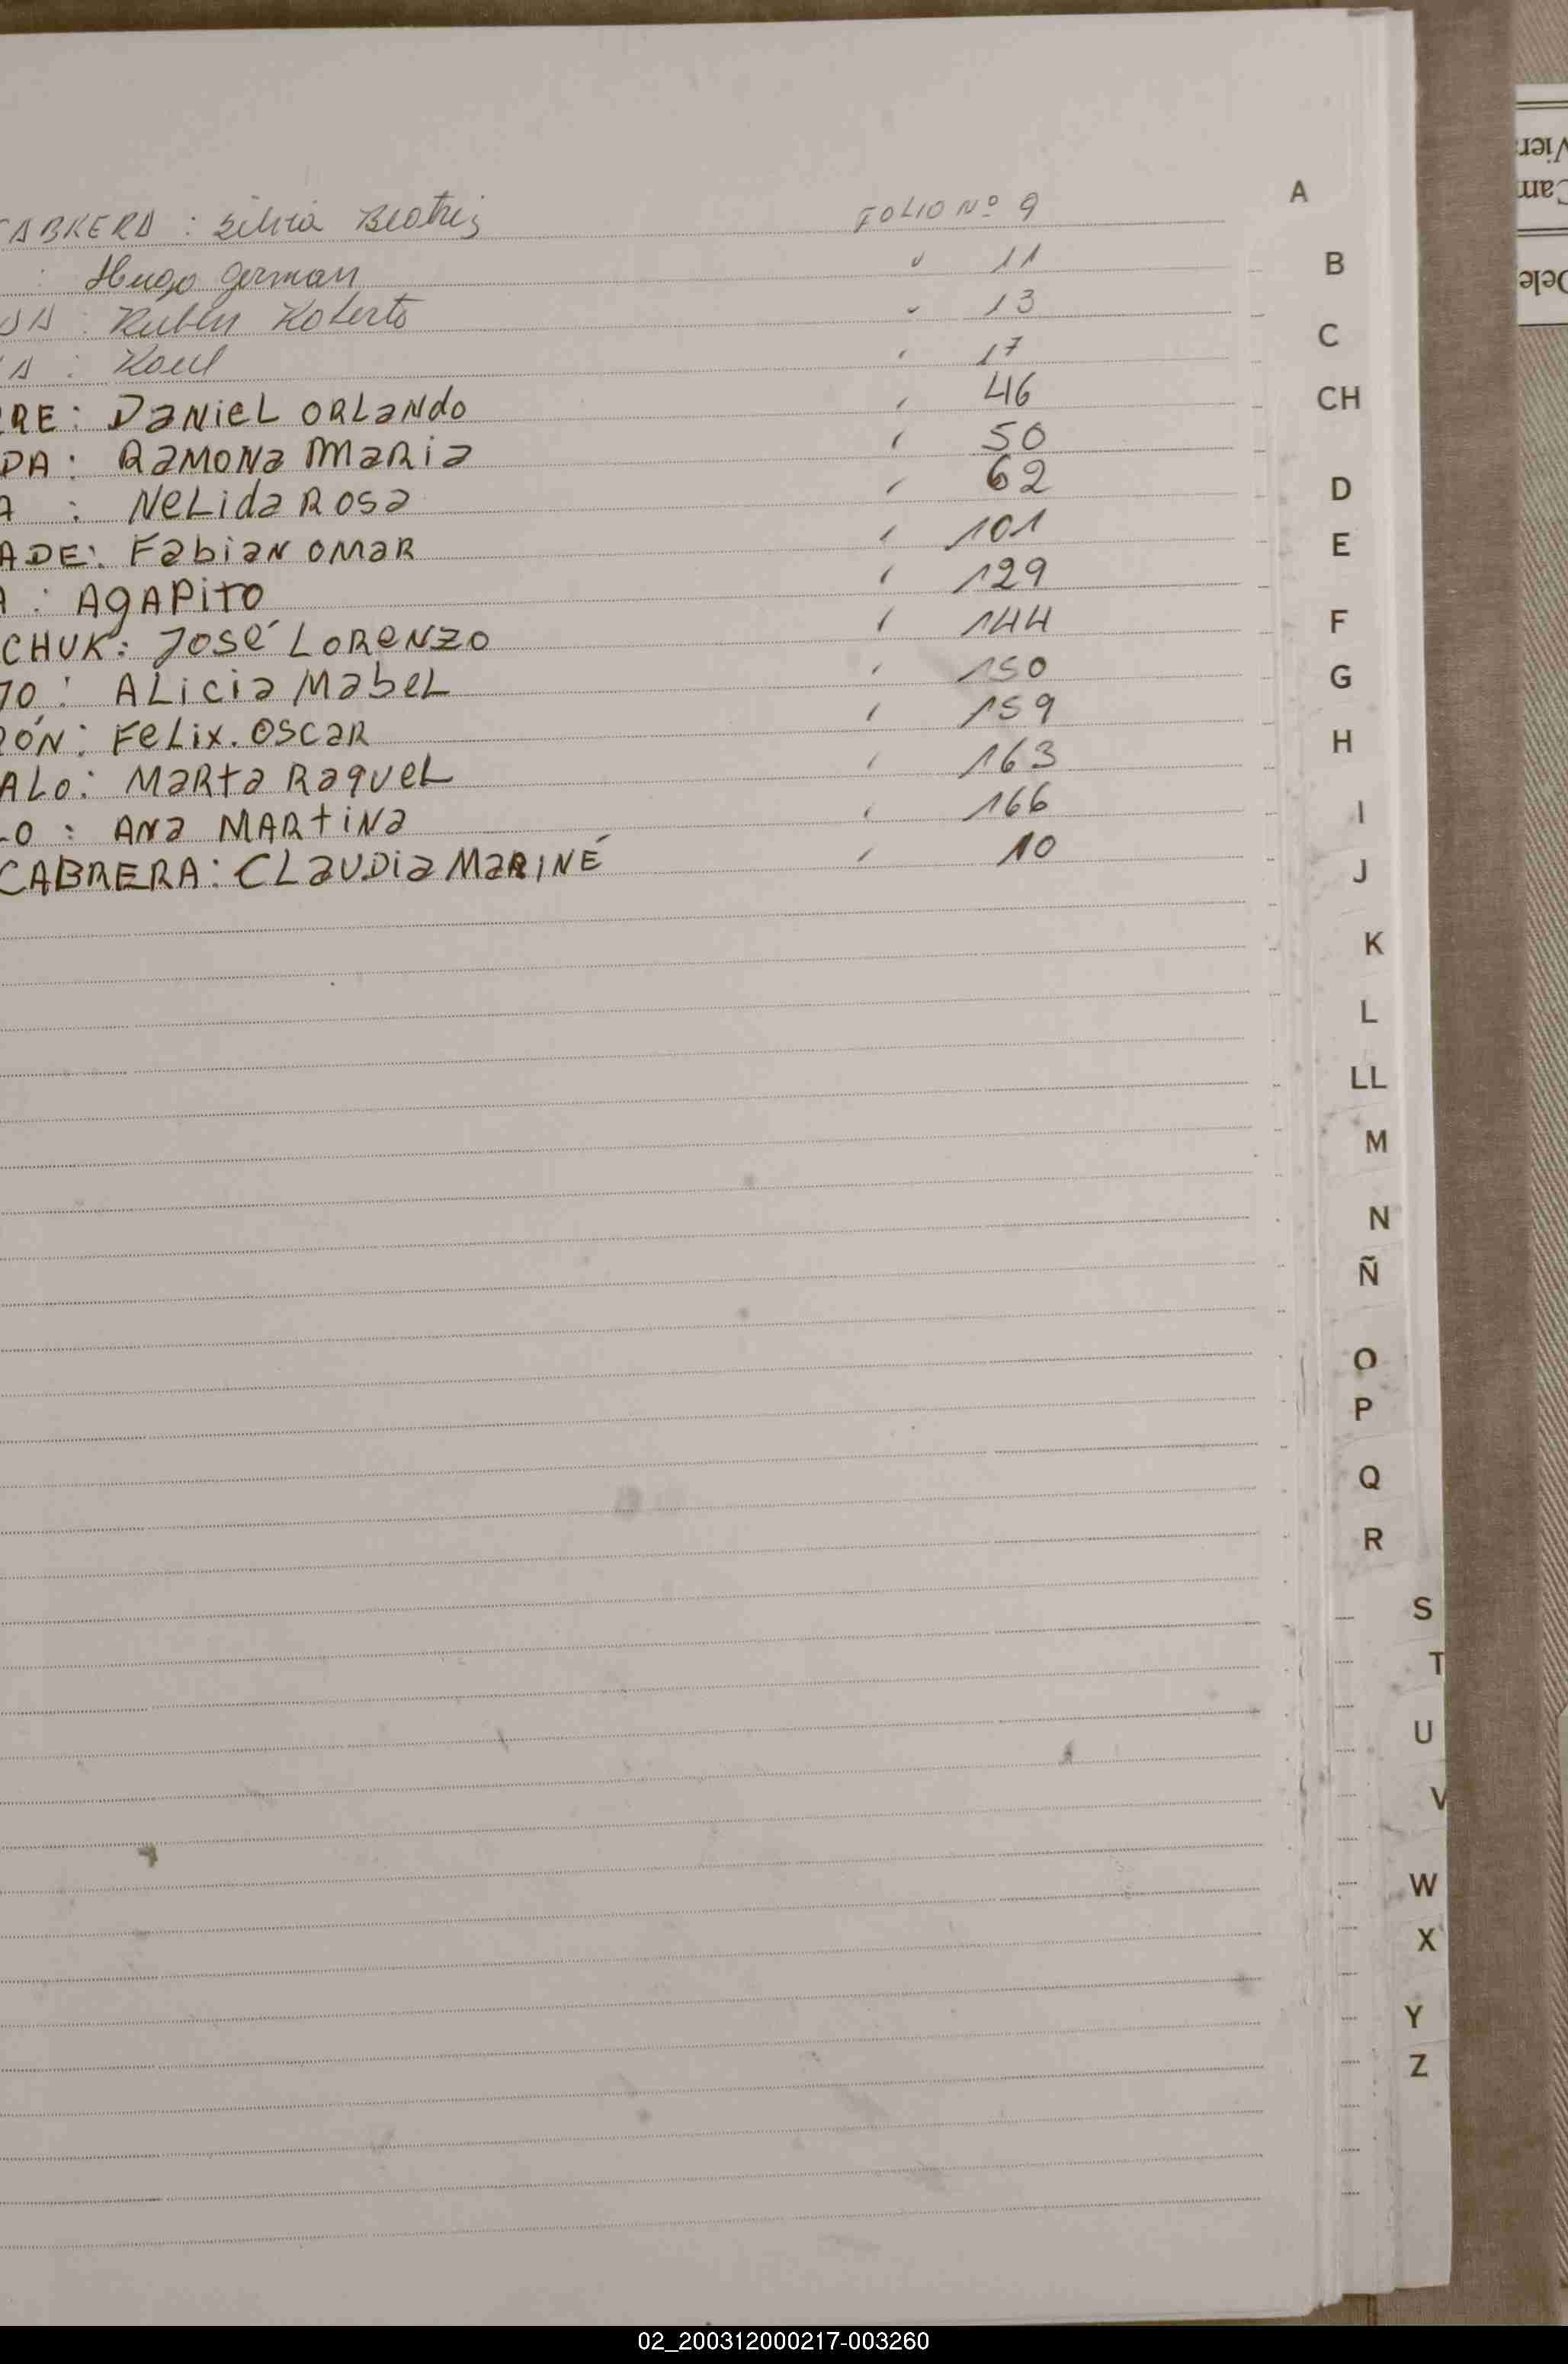 CABRERA : Silvia Beatriz FOLIO Nº 9
: Hugo German " 11
DA : Ruben Roberto " 13
A : Raul " 17
RRE: DANIEL ORLANDO " 46
DA: RAMONA MARIA " 50
A : NELIDA ROSA " 62
ADE: FABIAN OMAR " 101
A : AGAPITO " 129
CHUK: JOSÉ LORENZO " 144
JO: ALICIA MABEL " 150
RÓN: FELIX. OSCAR " 159
ALO: MARTA RAQUEL " 163
LO : ANA MARTINA " 166
CABRERA: CLAUDIA MARINÉ " 10
A
B
C
CH
D
E
F
G
H
I
J
K
L
LL
M
N
Ñ
O
P
Q
R
S
T
U
V
W
X
Y
Z
02_200312000217-003260